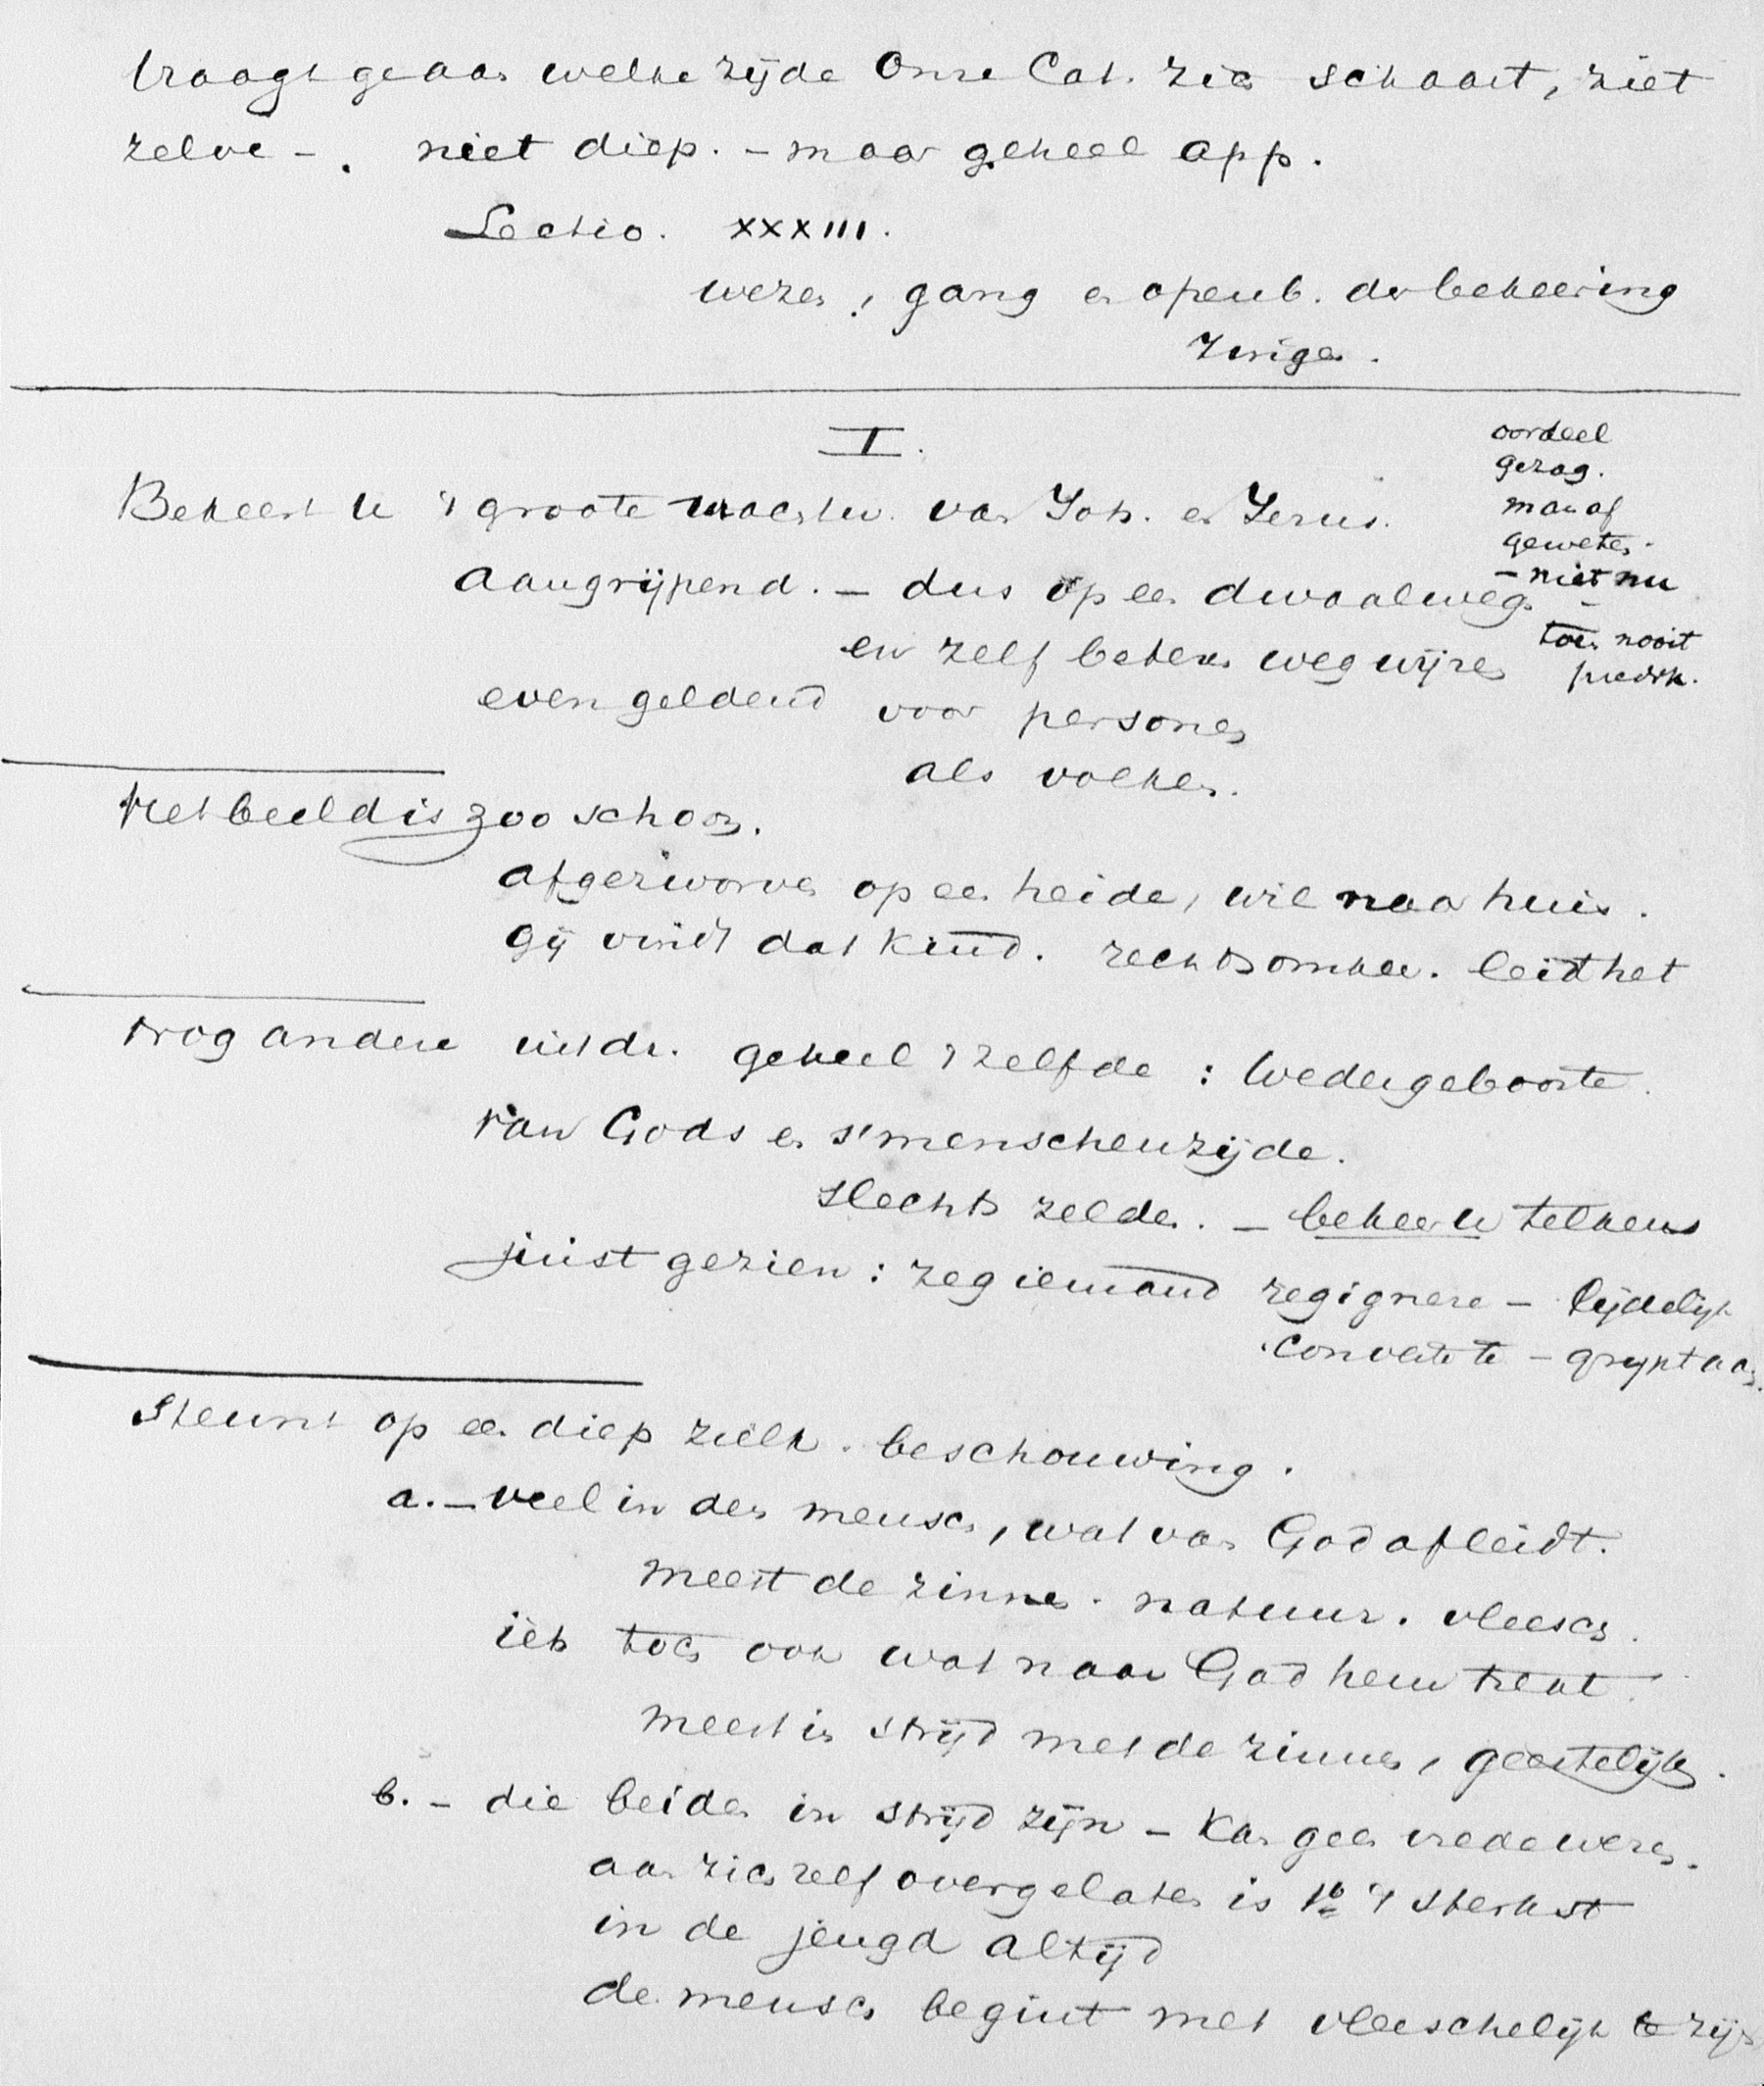 Vraagt ge aan welke zijde Onze Cat. zich schaart, ziet
zelve -. niet diep. - maar geheel app.
Lectio. XXXIII.
wezen, gang en openb. der bekeering
zwigen.
I.
oordeel
gezag.
man af
geweten.
Bekeert U 't groote van Joh. en Jezus.
- niet nu
aangrijpend. - dus op een dwaalweg
toen nooit
predik.
en zelf beteren weg wijzen
even geldend voor personen
als volken.
Het beeld is zoo schoon.
afgezworven op een heide, wil naar huis.
gij vindt dat kind. rechtsomkeer. leidt het
Nog andere uitdr. geheel 't zelfde: Wedergeboorte.
van Gods en s'menschenzijde.
slechts zelden. - bekeer U telkens
juist gezien: zeg iemand regignere - lijdelijk
convertete - grijpt aan.
Steunt op een diep zielk. beschouwing.
a. - veel in den mensch, wat van God afleidt.
meest de zinnen. natuur. vleesch.
iets toch ook wat naar God hem trekt.
meest in strijd met de zinnen, geestelijk.
b. - die beiden in strijd zijn - Kan geen vrede wezen.
aan zich zelf overgelaten is 1o 't sterkst
in de jeugd altijd
de mensch begint met vleeschelijk te zijn